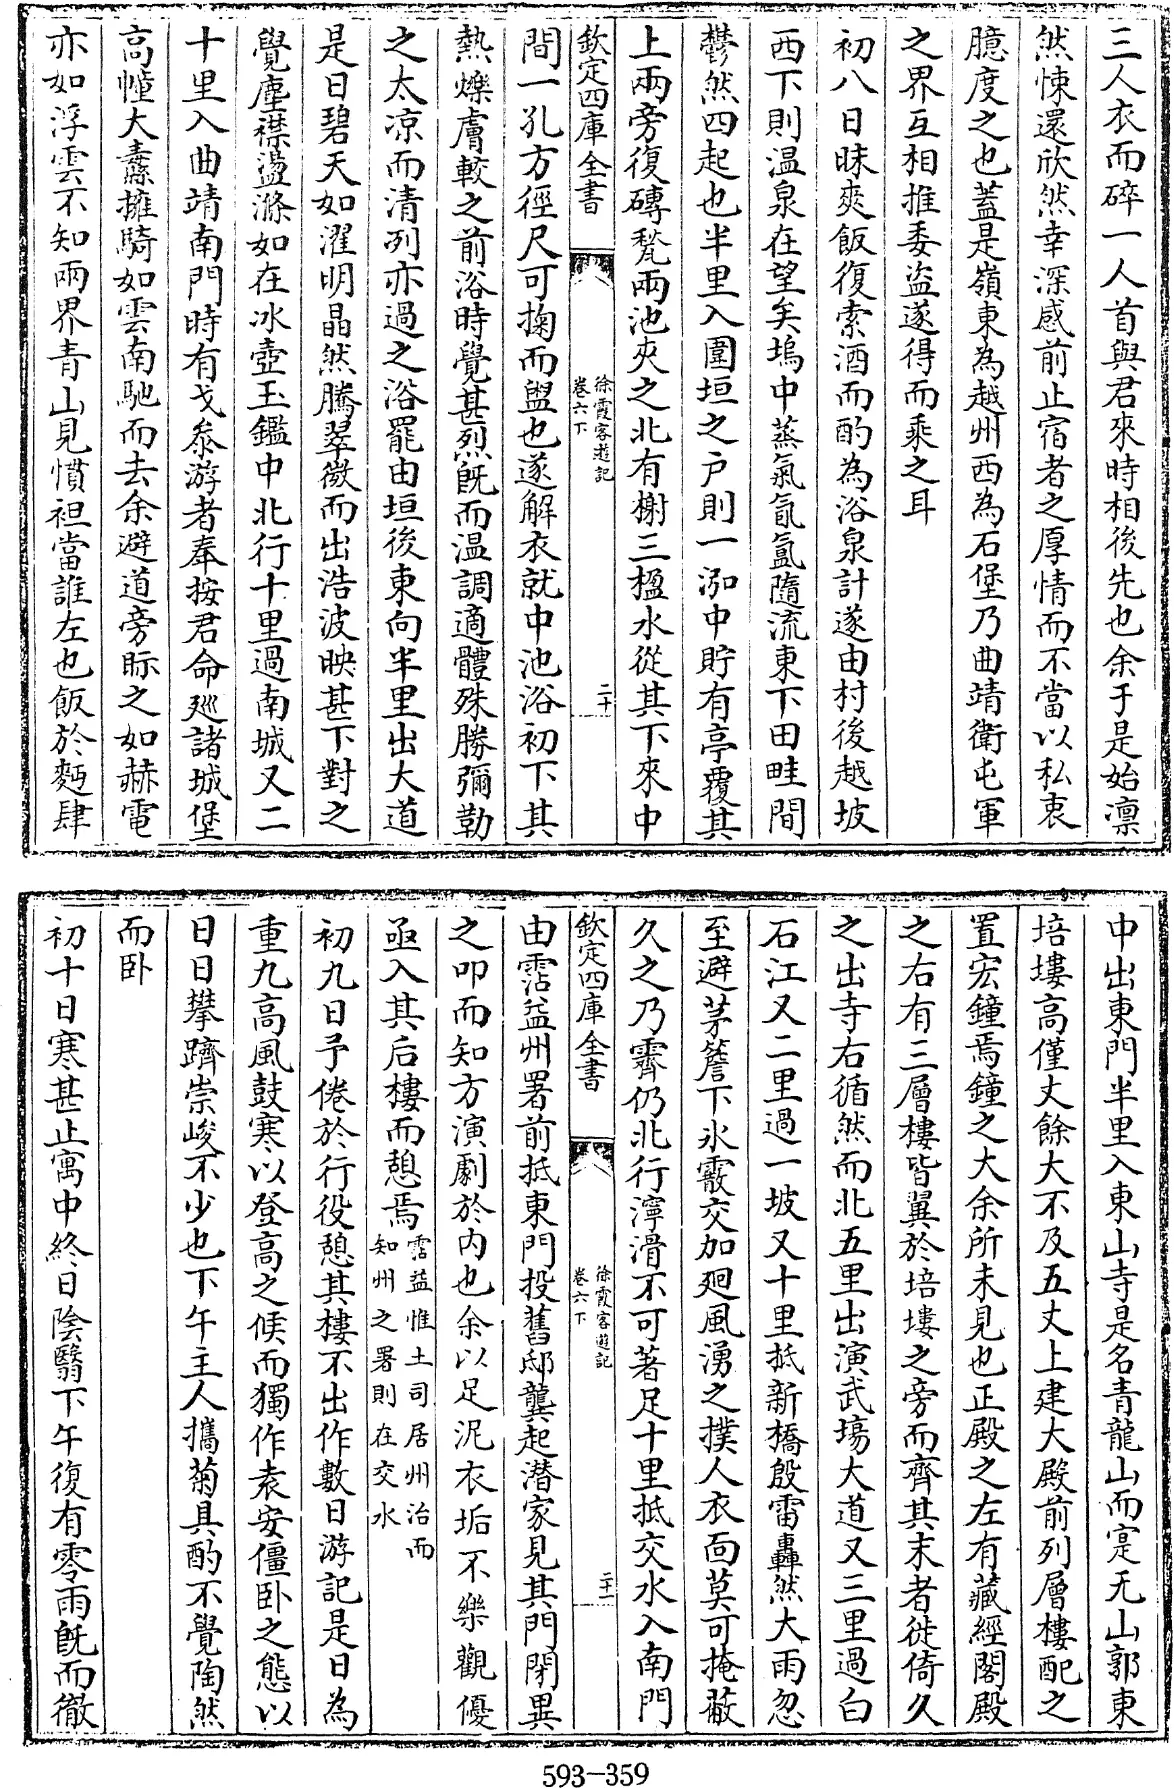 三人衣而碎一人首與君來時相後先也余于是始凜
然悚還欣然幸深感前止宿者之厚情而不當以私衷
臆度之也蓋是嶺東為越州西為石堡乃曲靖衛屯軍
之界互相推委盜遂得而乘之耳
初八日昧爽飯復索酒而酌為浴泉計遂由村後越坡
西下則温泉在望矣塢中蒸氣氤氲隨流東下田畦間
鬱然四起也半里入圍垣之户則一泓中貯有亭覆其
上兩旁復磚甃兩池夾之北有榭三楹水從其下來中
欽定四庫全書
徐霞客遊記
卷六下
二十
間一孔方徑尺可掬而盥也遂解衣就中池浴初下其
熱爍膚較之前浴時覺甚烈旣而温調適體殊勝彌勒
之太凉而清列亦過之浴罷由垣後東向半里出大道
是日碧天如濯明晶然騰翠微而出浩波映其下對之
覺塵襟盪滌如在冰壺玉鑑中北行十里過南城又二
十里入曲靖南門時有戈叅游者奉按君命廵諸城堡
高幢大纛擁騎如雲南馳而去余避道旁眎之如赫電
亦如浮雲不知兩界青山見慣袒當誰左也飯於麪肆
中出東門半里入東山寺是名青龍山而寔无山郭東
培塿高僅丈餘大不及五丈上建大殿前列層樓配之
置宏鐘焉鐘之大余所未見也正殿之左有藏經閣殿
之右有三層樓皆翼於培塿之旁而齊其末者徙倚久
之出寺右循然而北五里出演武塲大道又三里過白
石江又二里過一坡又十里抵新橋殷雷轟然大雨忽
至避茅簷下氷霰交加廻風湧之撲人衣面莫可掩蔽
久之乃霽仍北行濘滑不可著足十里抵交水入南門
欽定四庫全書
徐霞客遊記
卷六下
二十一
由霑益州署前抵東門投舊邸龔起潛家見其門閉異
之叩而知方演劇於内也余以足泥衣垢不樂觀優
亟入其后樓而憩焉霑益惟土司居州治而
知州之署則在交水
初九日予倦於行役憩其樓不出作數日游記是日為
重九高風鼓寒以登高之候而獨作袁安僵卧之態以
日日攀躋崇峻不少也下午主人攜菊具酌不覺陶然
而卧
初十日寒甚止寓中終日陰翳下午復有零雨旣而徹
593-359